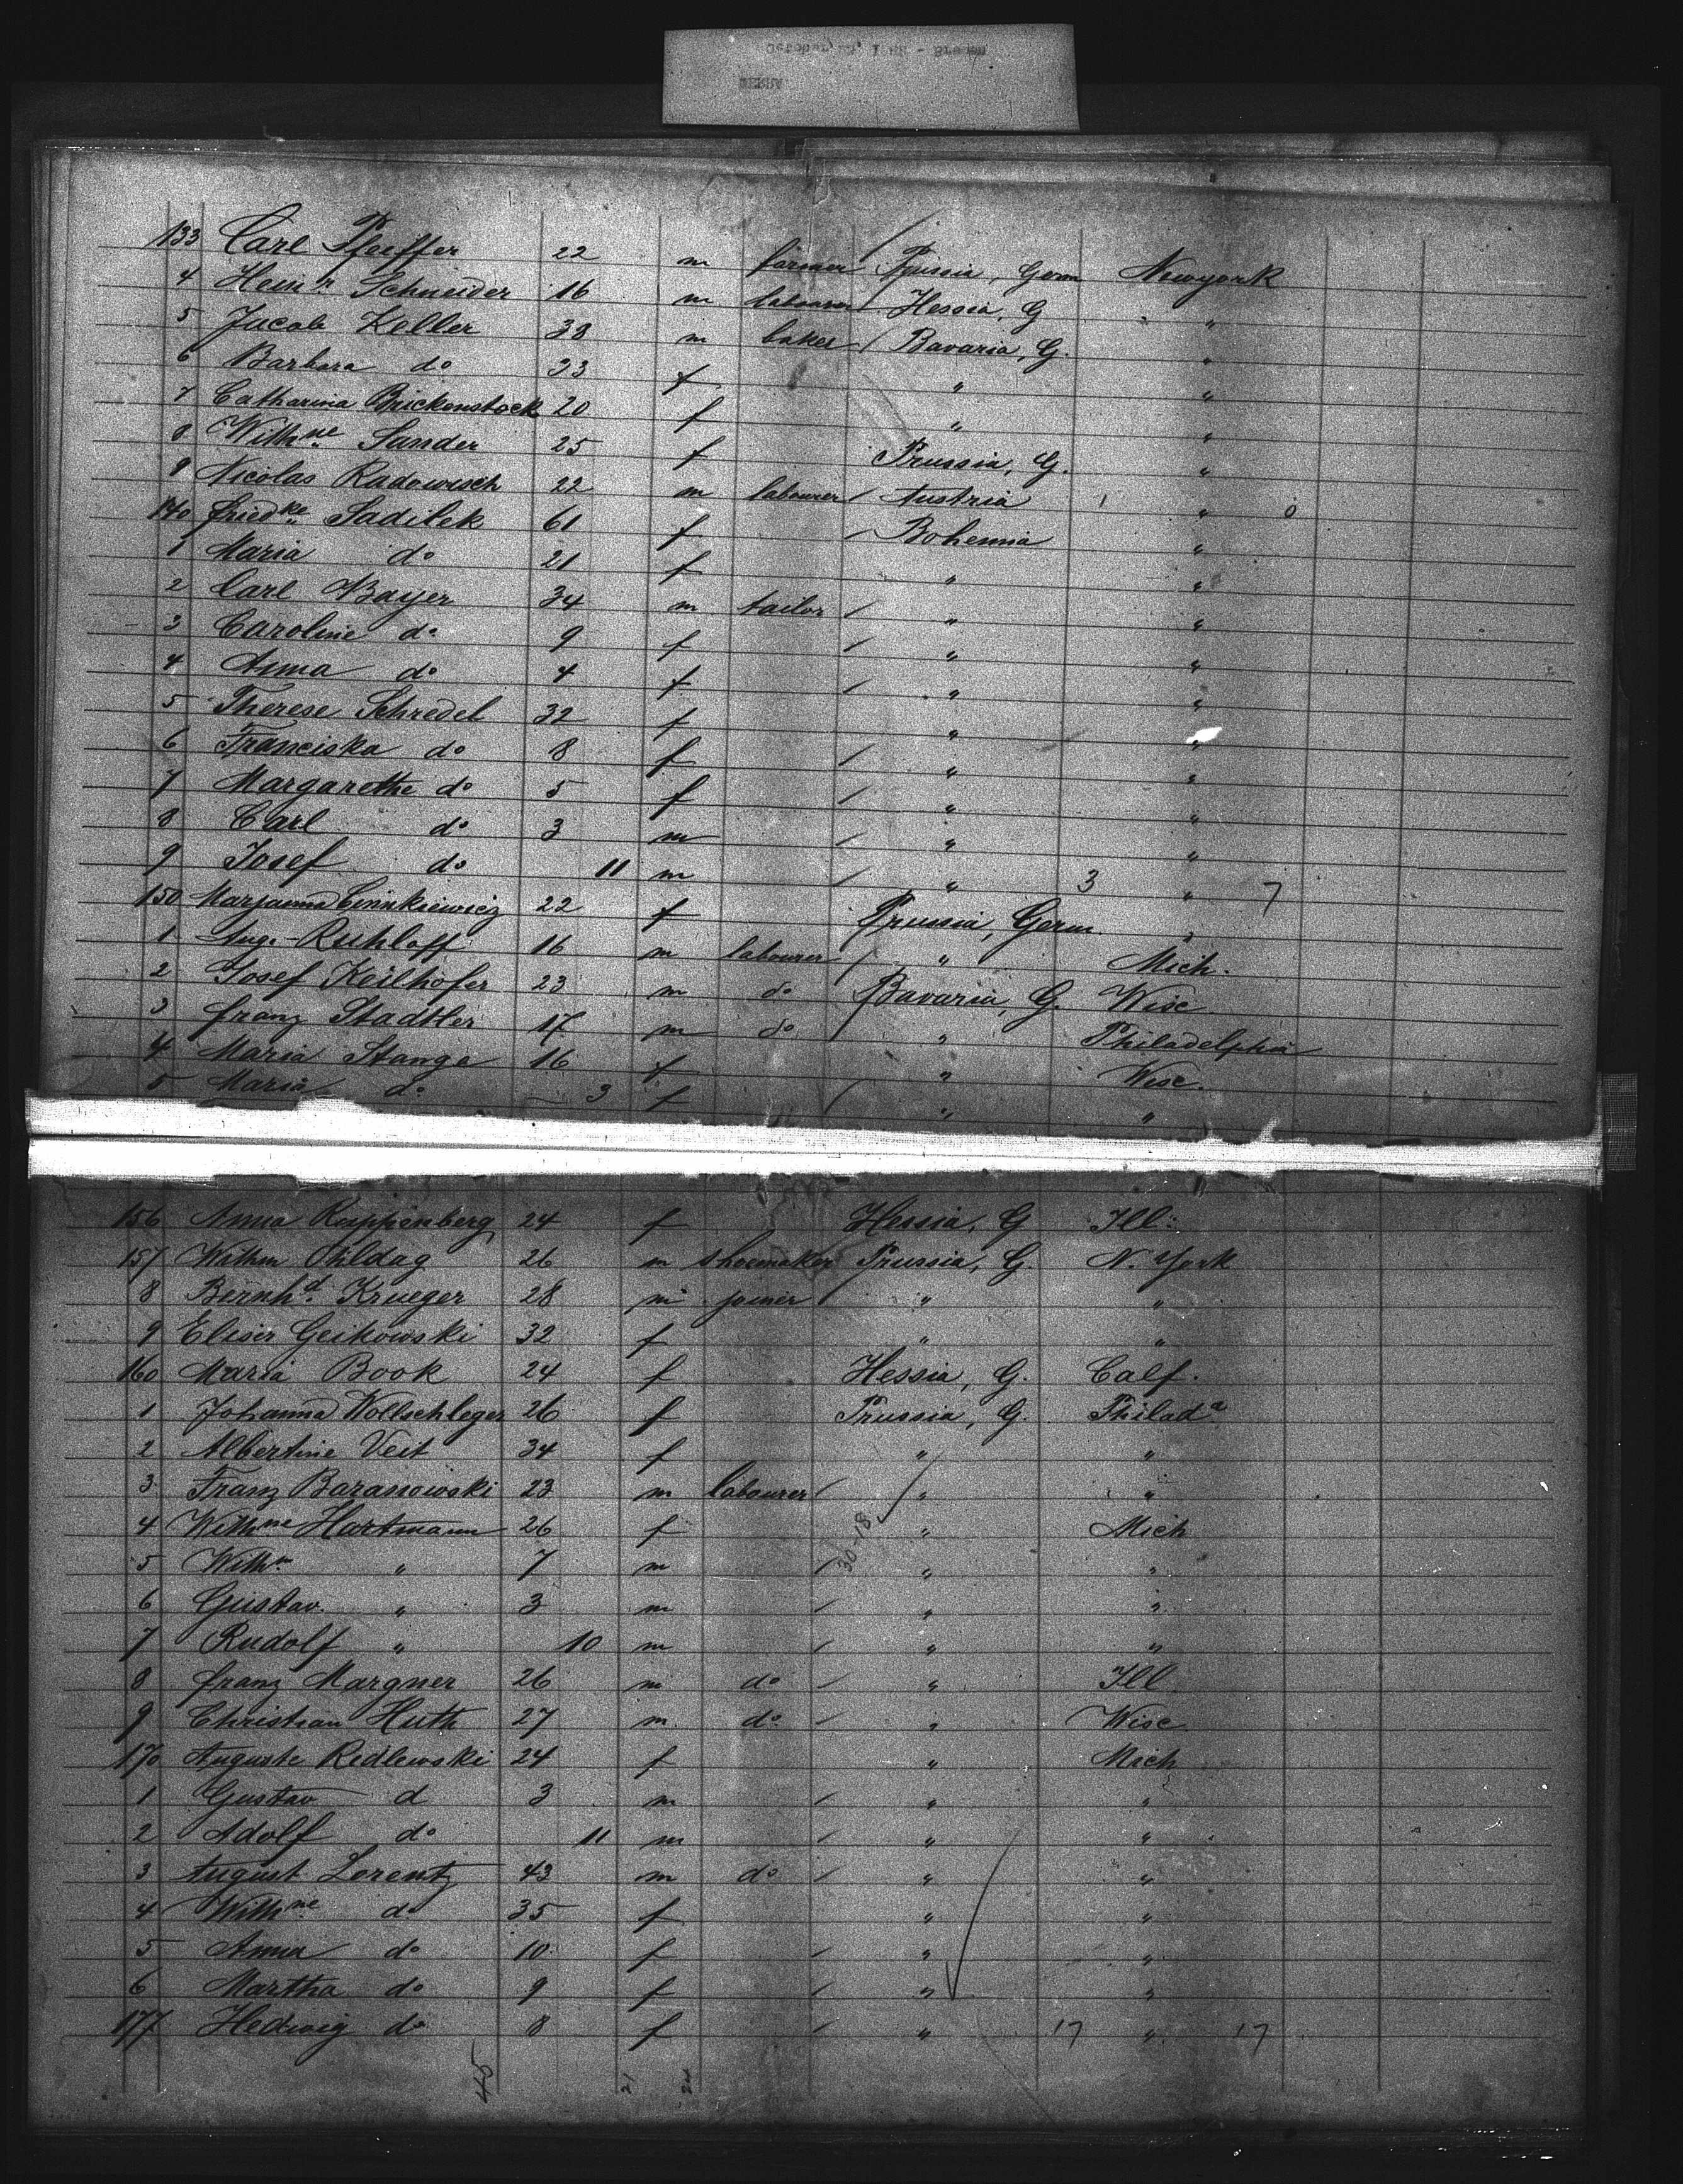 133 Carl Pfeiffer 22 m farmer Prussia, Germ Newyork
4 Heinr Schneider 16 m labourer Hessia, G "
5 Jacob Keller 38 m baker Bavaria, G. "
6 Barbara do 23 f " "
7 Catharina Brickenstock 20 f " "
8 Wilhne Sander 25 f Prussia, G. "
9 Nicolas Radowisch 22 m labourer Austria "
140 Friedke Sadilek 61 f Bohemia "
1 Maria do 21 f " "
2 Carl Bayer 34 m tailor " "
3 Caroline do 9 f " "
4 Anna do 4 f " "
5 Therese Schredel 32 f " "
6 Franciska do 8 f " "
7 Margarethe do 5 f " "
8 Carl do 3 m " "
9 Josef do 11 m " 3 " 7
150 Marjanna Cinnkiewicz 22 f Prussia, Germ "
1 Aug. Ruhloff 16 m labourer " Mich.
2 Josef Keilhofer 23 m do Bavaria, G. Wisc.
3 Franz Stadtler 17 m do " Philadelphia
4 Maria Stange 16 f " Wisc.
5 Maria do 3 f " "
156 Anna Ruppenberg 24 f Hessia, G Ill:
157 Wilhm Ohldag 26 m shoemaker Prussia, G. N. York
8 Bernhd. Krueger 28 m joiner " "
9 Elisir Geikowski 32 f " "
160 Maria Book 24 f Hessia, G. Calf.
1 Johanna Wollschleger 26 f Prussia, G. Philada
2 Albertine Veit 34 f " "
3 Franz Baranowski 23 m labourer " "
4 Wilhne Hartmann 26 f 30-18 " Mich
5 Wilhm " 7 m " "
6 Gustav " 3 m " "
7 Rudolf " 10 m " "
8 Franz Margner 26 m do " Ill
9 Christian Huth 27 m do " Wisc
170 Auguste Redlewski 24 f " Mich
1 Gustav d 3 m " "
2 Adolf do 11 m " "
3 August Lorentz 43 m do " "
4 Wilhne do 35 f " "
5 Anna do 10 f " "
6 Martha do 9 f " "
177 Hedwig do 8 f " 17 " 17
45 21 24